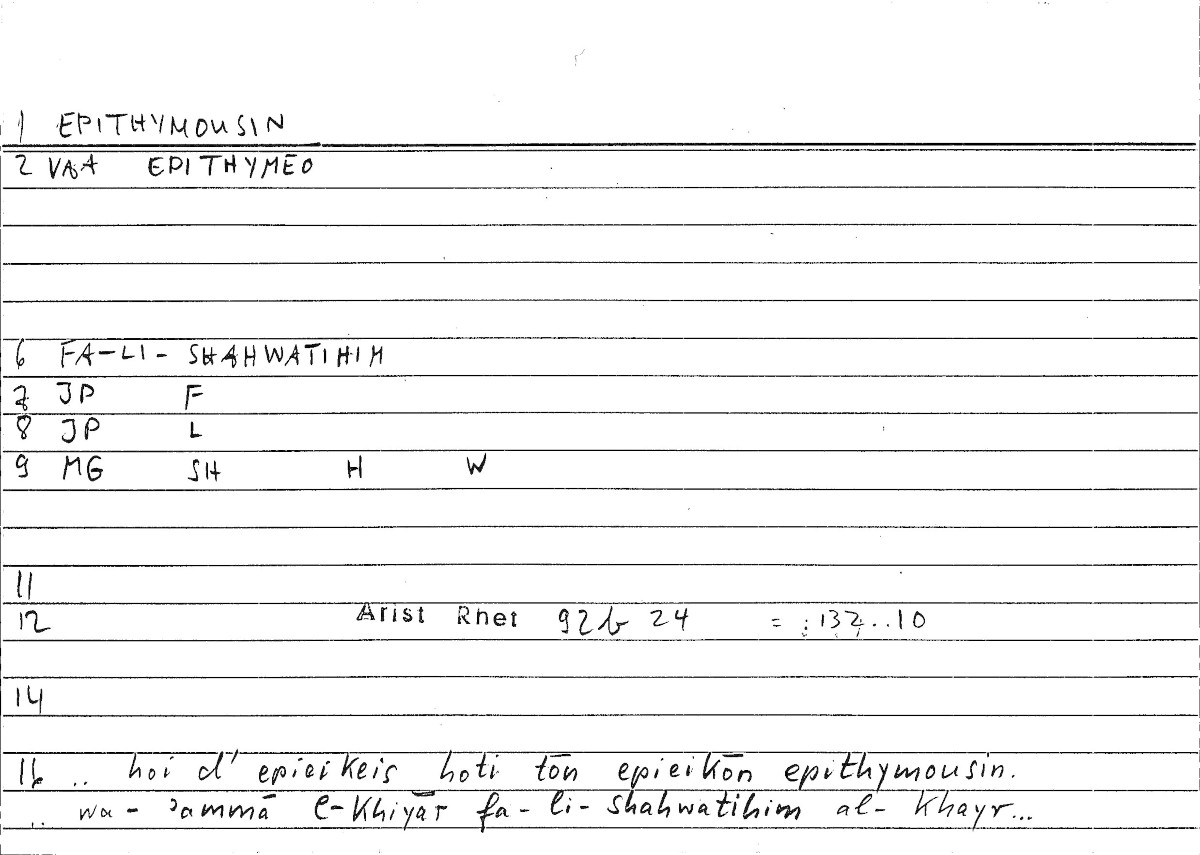 1 EPITHYMOUSIN
2 VAA EPITHYMEO
6 FA-LI- SHAHWATIHIM
7 JP F
8 JP L
9 MG SH H W
11
12 Arist Rhet 92b 24 = 132..10
14
16 .. hoi d' epieikeis hoti tōn epieikōn epithymousin.
.. wa- ʾammā l-khiyār fa-li-shahwatihim al-khayr...